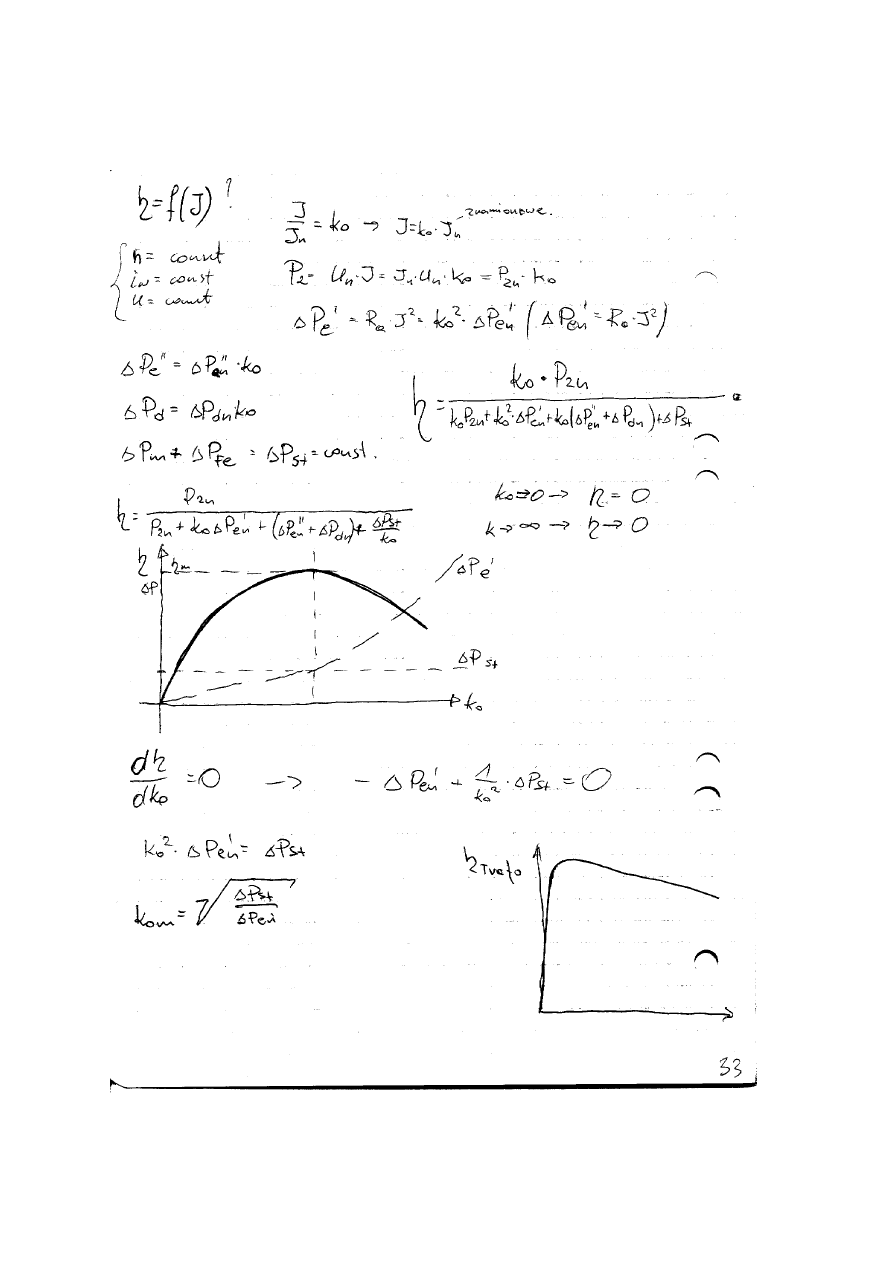 η=f(J)?
J/Jn = ko → J=ko·Jn znamionowe.
{ n = const
iw = const
U = const
P2 = Un·J = Jn·Un·ko = P2n·ko
ΔPe' = Ra·J² = ko²·ΔPen' (ΔPen' = Ra·J²)
ΔPe'' = ΔPen''·ko
ΔPd = ΔPdn ko
ΔPm + ΔPFe = ΔPst = const.
η = ko·P2n / koP2n+ko²·ΔPen'+ko(ΔPen''+ΔPdn)+ΔPst
η = P2n / P2n + koΔPen' + (ΔPen''+ΔPdn)+ ΔPst/ko
ko⇒0 → η = 0
k→∞ → η→0
η
ηm
ΔP
ΔPe'
ΔPst
ko
dη/dko = 0 → - ΔPen' + 1/ko² · ΔPst = 0
ko²·ΔPen' = ΔPst
kom = √ΔPst/ΔPen'
ηTrafo
33